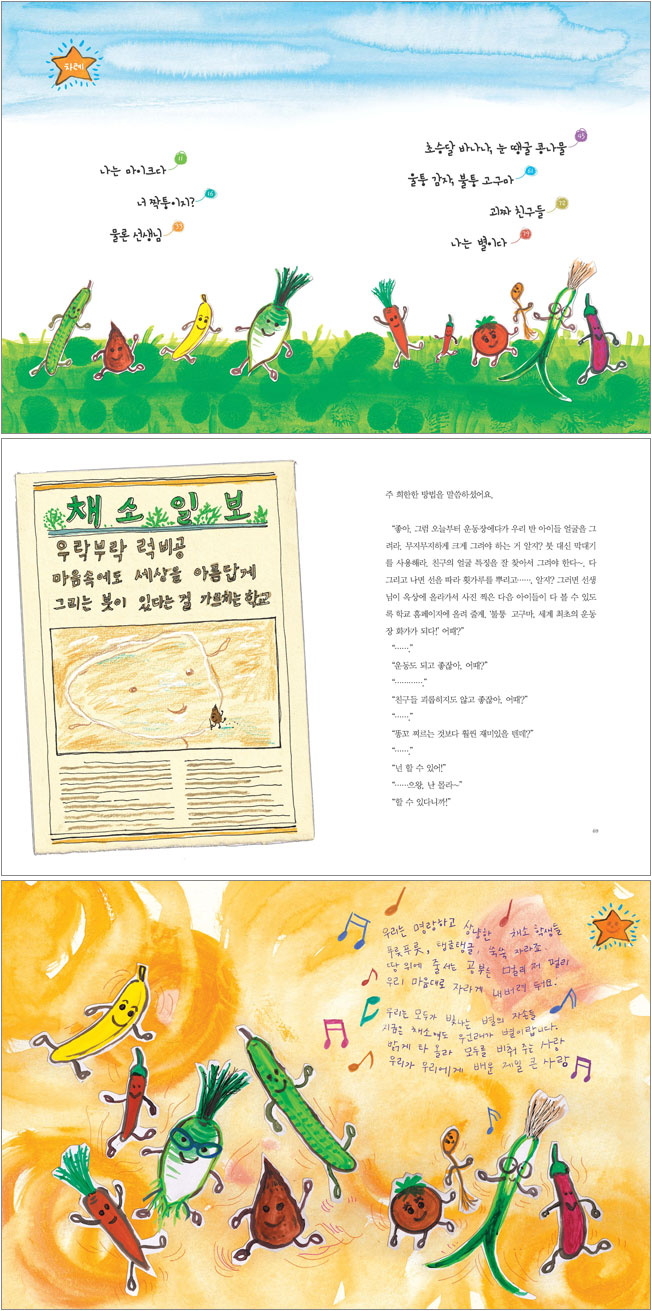 차례
나는 마이크다 11
너 짝퉁이지? 16
물론 선생님 33
초승달 바나나, 눈 땡글 콩나물 45
울퉁 감자, 불퉁 고구마 61
괴짜 친구들 72
나는 별이다 79
채소일보
우락부락 럭비공
마음속에도 세상을 아름답게
그리는 붓이 있다는 걸 가르치는 학교
주 희한한 방법을 말씀하셨어요.
“좋아, 그럼 오늘부터 운동장에다가 우리 반 아이들 얼굴을 그
려라. 무지무지하게 크게 그려야 하는 거 알지? 붓 대신 막대기
를 사용해라. 친구의 얼굴 특징을 잘 찾아서 그려야 한다~. 다
그리고 나면 선을 따라 횟가루를 뿌리고……, 알지? 그러면 선생
님이 옥상에 올라가서 사진 찍은 다음 아이들이 다 볼 수 있도
록 학교 홈페이지에 올려 줄게. ‘불퉁 고구마, 세계 최초의 운동
장 화가가 되다!’ 어때?”
“……”
“운동도 되고 좋잖아. 어때?”
“…………”
“친구들 괴롭히지도 않고 좋잖아. 어때?”
“……”
“똥꼬 찌르는 것보다 훨씬 재미있을 텐데?”
“……”
“넌 할 수 있어!”
“……으왕, 난 몰라~”
“할 수 있다니까!”
69
우리는 명랑하고 상냥한 채소 학생들
푸릇푸릇, 탱글탱글, 쑥쑥 자라죠
땅 위에 줄서는 공부는 멀리 저 멀리
우리 마음대로 자라게 내버려 둬요.
우리는 모두가 빛나는 별의 자손들
지금은 채소여도 우린 별이랍니다.
밝게 타 올라 모두를 비춰 주는 사랑
우리가 우리에게 배운 제일 큰 사랑